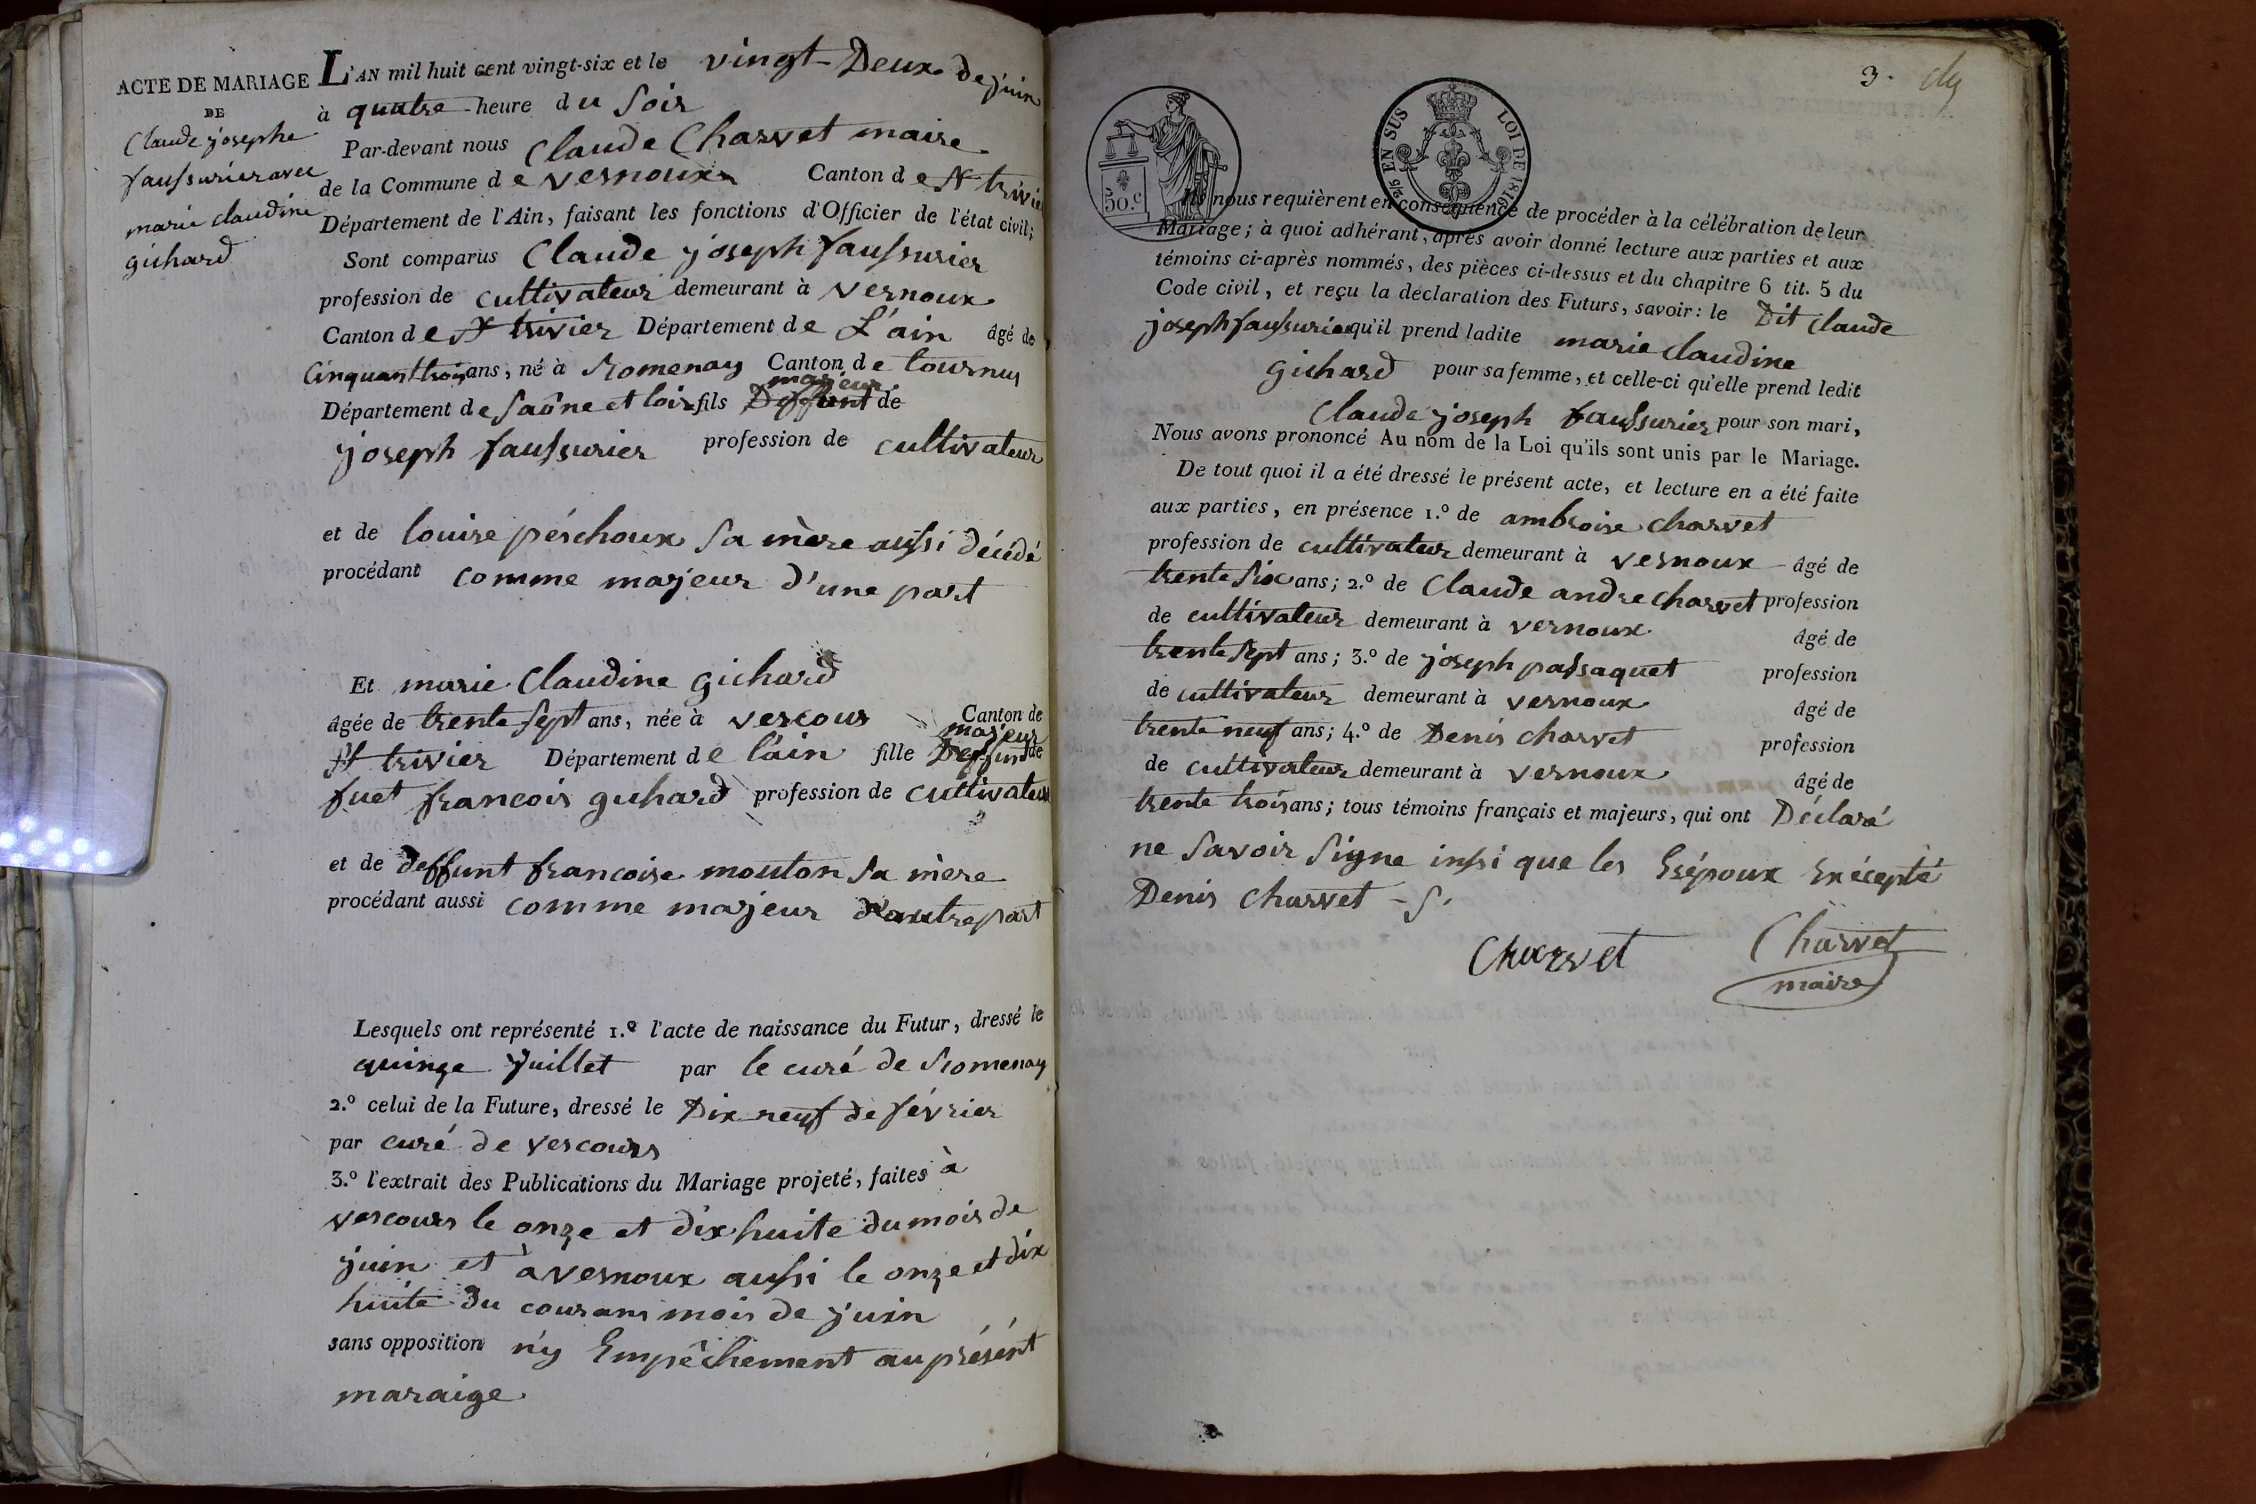 ACTE DE MARIAGE
DE
Claude josephe
faussurier avec
marie claudine
gichard
L'AN mil huit cent vingt-six et le vingt-Deux de juin
à quatre heure du Soir
Par-devant nous Claude Charvet maire
de la Commune de vernoux Canton de St trivier
Département de l'Ain, faisant les fonctions d'Officier de l'état civil;
Sont comparus Claude joseph faussurier
profession de cultivateur demeurant à vernoux
Canton de St trivier Département de L'ain âgé de
Cinquant trois ans, né à Romenay Canton de tournus
majeur
Département de Saône et loire fils Deffunt de
joseph faussurier profession de cultivateur
et de louise pérchoux Sa mère aussi décédé
procédant comme majeur d'une part
Et marie Claudine gichard
âgée de trente sept ans, née à vescour Canton de
majeur
St trivier Département de l'ain fille Deffunt de
fuet francois guhard profession de cultivateur
et de deffunt francoise mouton Sa mère
procédant aussi comme majeur d'autre part
Lesquels ont représenté 1.º l'acte de naissance du Futur, dressé le
quinze Juillet par le curé de Romenay
2.º celui de la Future, dressé le Dix neuf de février
par curé de vescours
3.º l'extrait des Publications du Mariage projeté, faites à
vescours le onze et dix huite du mois de
juin et à vernoux aussi le onze et dix
huite du courans mois de juin
sans opposition n'y Empêchement au présént
maraige
3.
50.C
2/5 EN SUS
LOI DE 1816
Ils nous requièrent en conséquence de procéder à la célébration de leur
Mariage; à quoi adhérant, après avoir donné lecture aux parties et aux
témoins ci-après nommés, des pièces ci-dessus et du chapitre 6 tit. 5 du
Code civil, et reçu la déclaration des Futurs, savoir: le Dit Claude
joseph faussurier qu'il prend ladite marie claudine
gichard pour sa femme, et celle-ci qu'elle prend ledit
Claude joseph faussurier pour son mari,
Nous avons prononcé Au nom de la Loi qu'ils sont unis par le Mariage.
De tout quoi il a été dressé le présent acte, et lecture en a été faite
aux parties, en présence 1.º de ambroise charvet
profession de cultivateur demeurant à vernoux âgé de
trente six ans; 2.º de Claude andre charvet profession
de cultivateur demeurant à vernoux âgé de
trente sept ans; 3.º de joseph passaquet profession
de cultivateur demeurant à vernoux âgé de
trente neuf ans; 4.º de Denis charvet profession
de cultivateur demeurant à vernoux âgé de
trente trois ans; tous témoins français et majeurs, qui ont Déclaré
ne Savoir Signe inssi que les Esépoux Exécepté
Denis Charvet - S.
Charvet
Charvet
maire